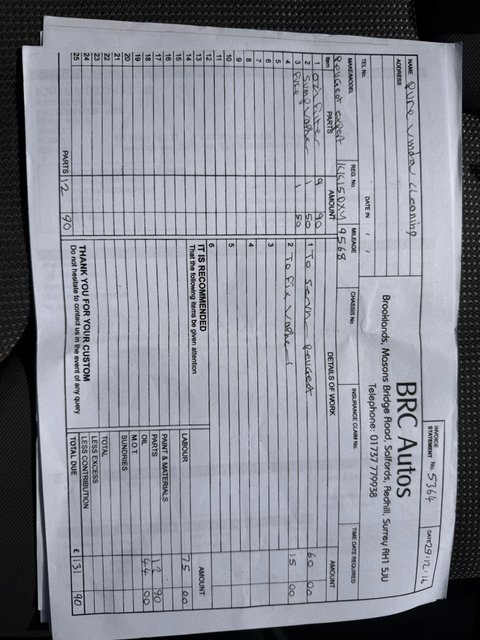 INVOICE
STATEMENT No. 5364
DATE 29.12.16
BRC Autos
Brooklands, Masons Bridge Road, Salfords, Redhill, Surrey RH1 5JU
Telephone: 01737 779938
NAME Pure window cleaning
ADDRESS
TEL No.
DATE IN / /
CHASSIS No.
INSURANCE CLAIM No.
TIME DATE REQUIRED
MAKE/MODEL Peugeot expert
REG. No. KK15DXV
MILEAGE 9568
Item PARTS AMOUNT
1 Oil Filter 9 90
2 Sump washer 1 50
3 1 50
4
5
6
7
8
9
10
11
12
13
14
15
16
17
18
19
20
21
22
23
24
25
PARTS 12 90
DETAILS OF WORK AMOUNT
1 To Service Peugeot 60 00
2 To Fix 15 00
3
4
5
6
IT IS RECOMMENDED
That the following items be given attention
THANK YOU FOR YOUR CUSTOM
Do not hesitate to contact us in the event of any query
AMOUNT
LABOUR 75 00
PAINT & MATERIALS
PARTS 12 90
OIL 44 00
M.O.T.
SUNDRIES
TOTAL
LESS EXCESS
LESS CONTRIBUTION
TOTAL DUE £ 131 90